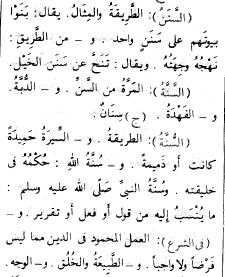 (السَّنَنُ): الطَّرِيقَةُ والمِثالُ. يقال: بَنَوْا
بيوتَهم على سَنَنٍ واحد. و ــ من الطَّرِيقِ:
نَهْجُهُ وجِهَتُهُ. ويقال: تَنَحَّ عن سَنَنِ الخَيْلِ.
(السَّنَّةُ): المَرَّةُ من السَّنِّ. و ــ الدُّبَّةُ.
و ــ الفَهْدَةُ. (ج) سِنَانٌ.
(السُّنَّةُ): الطريقة. و ــ السِّيرَةُ حَمِيدَةً
كانت أو ذَمِيمَةً. و ــ سُنَّةُ اللهِ: حُكْمُهُ في
خليقته. وسُنَّةُ النبيّ صَلَّى الله عليه وسلم:
ما يُنْسَبُ إليه من قول أو فعل أو تقرير. و ــ
(في الشرع): العمل المحمود في الدين مما ليس
فَرْضًا ولا واجباً. و ــ الطَّبِيعَةُ والخُلُق. و ــ الوجه.